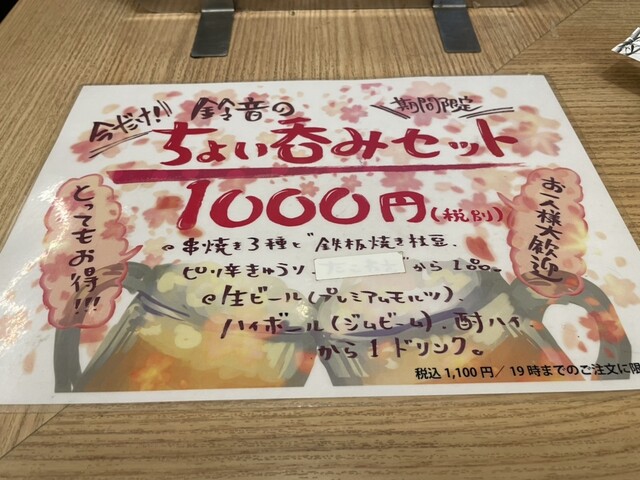 今だけ!!
鈴音の
期間限定
ちょい呑みセット
1000円(税別)
とってもお得!!!
お一人様大歓迎
串焼き3種と"鉄板焼き枝豆.
ピリ辛きゅうり から1品。
生ビール(プレミアムモルツ).
ハイボール(ジムビーム).酎ハイ.
から1ドリンク。
税込1,100円/19時までのご注文に限